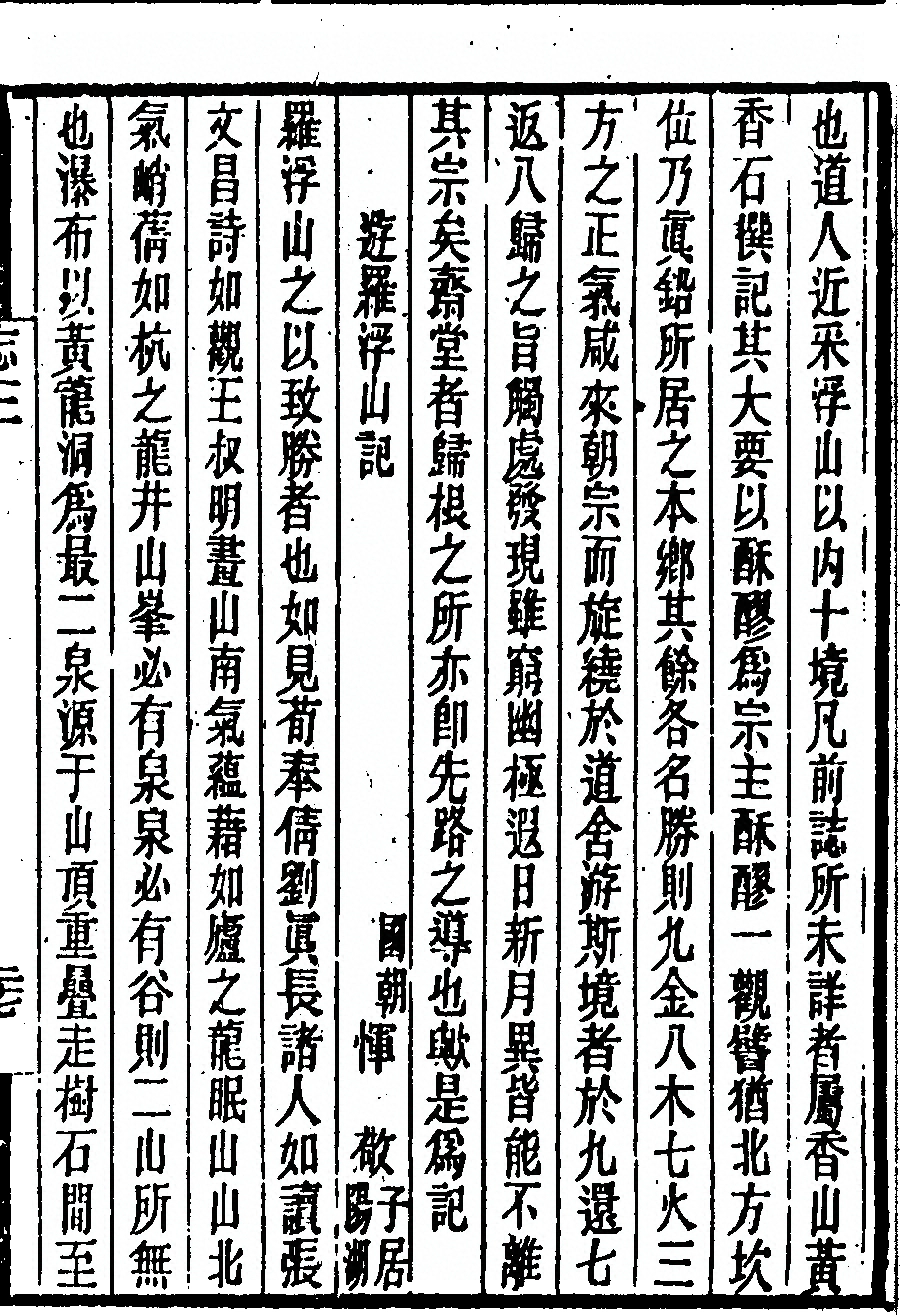 也道人近采浮山以内十境凡前誌所未詳者屬香山黃
香石撰記其大要以酥醪爲宗主酥醪一觀譬猶北方坎
位乃眞鉛所居之本鄉其餘各名勝則九金八木七火三
方之正氣咸來朝宗而旋繞於道舍游斯境者於九還七
返八歸之旨觸處發現雖窮幽極遐日新月異皆能不離
其宗矣齋堂者歸根之所亦即先路之導也歟是爲記
遊羅浮山記 國朝惲 敬子居陽湖
羅浮山之以致勝者也如見荀奉倩劉眞長諸人如讀張
文昌詩如觀王叔明畫山南氣蘊藉如廬之龍眠山山北
氣峭蒨如杭之龍井山峯必有泉泉必有谷則二山所無
也瀑布以黃龍洞爲最二泉源于山頂重疊走樹石間至